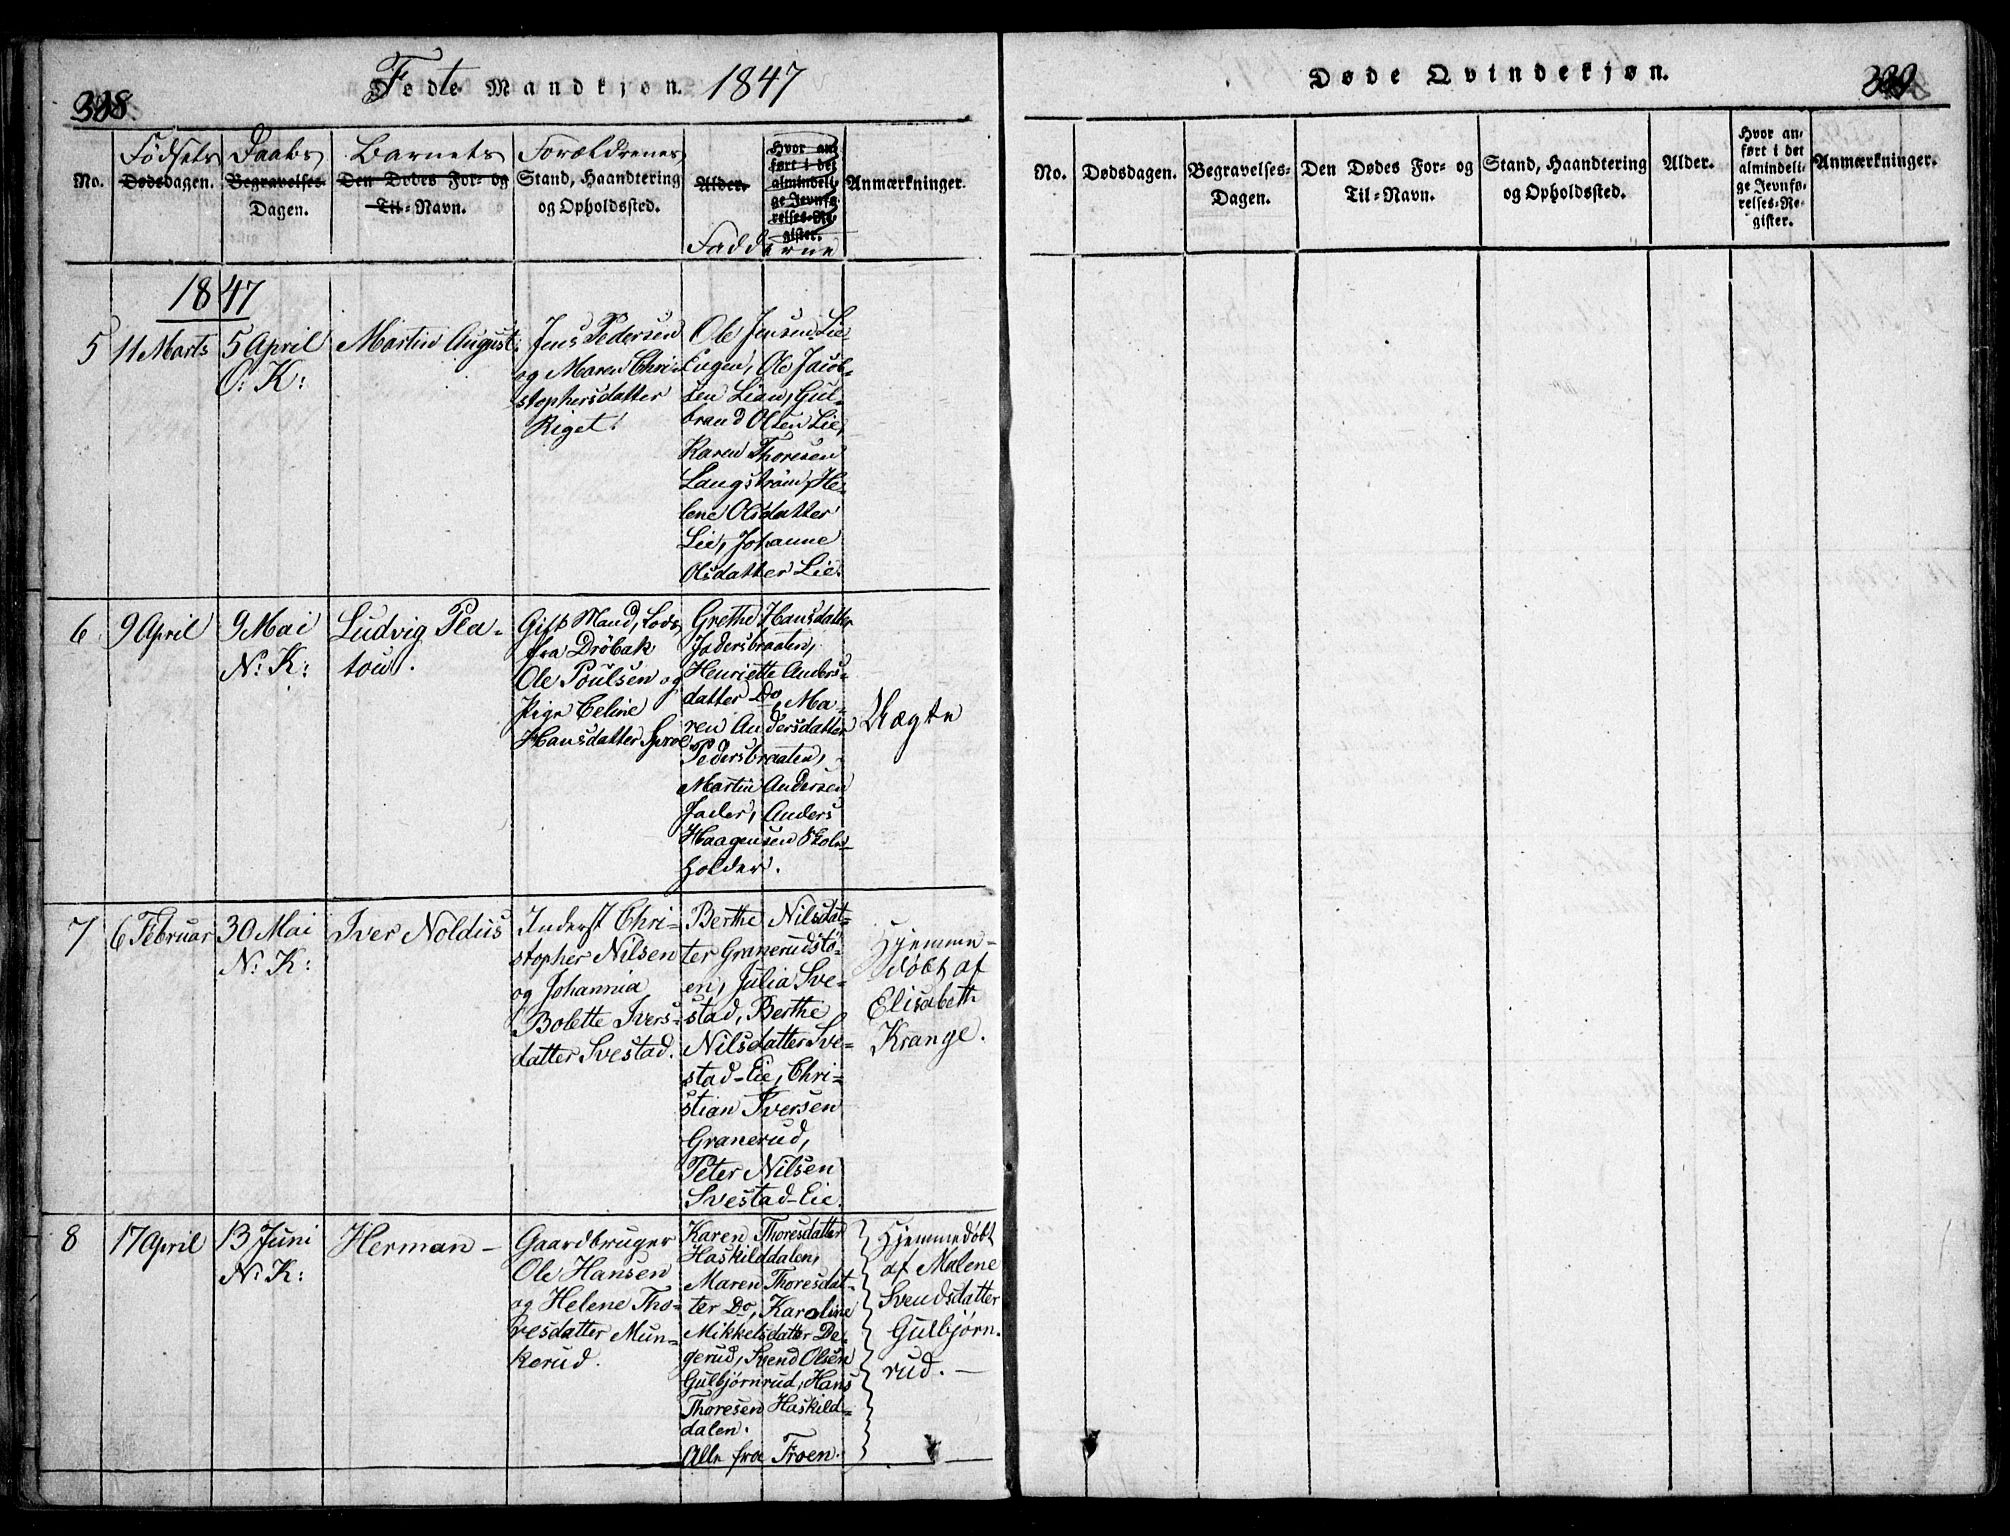 Fødte Mandkjøn. 1847
338.
No.
Fødsels
Dødsdagen.
Daabs
Begravelses-
Dagen.
Barnets
Den Dødes For- og
Til-Navn.
Forældrenes
Stand, Haandtering
og Opholdssted.
Alder.
Hvor an-
ført i det
almindeli-
ge Jevnfø-
relses-Re-
gister.
Fadderne
Anmærkninger.
1847
5
11 Marts
5 April
O: K:
Martin August.
Jens Pedersen
og Maren Chri-
stophersdatter
Riget.
Ole Jensen Lie
Engen, Ole Jacob-
sen Lian, Gul-
brand Olsen Lie,
Karen Thoresen
Langstrøm, He-
lene Olsdatter
Lie, Johanne
Olsdatter Lie.
6
9 April
9 Mai
N: K:
Ludvig Pla-
tou.
Gift Mand, Lods
fra Drøbak
Ole Poulsen og
Pige Celine
Hansdatter Sproe
Grethe Hansdatter
Jadersbraaten,
Henriette Anders-
datter Do, Ma-
ren Andersdatter
Pedersbraaten,
Martin Andersen
Jader, Anders
Haagensen Skole-
holder.
Uægte
7
6 Februar
30 Mai
N: K:
Iver Noldus
Inderst Chri-
stopher Nilsen
og Johannia
Bolette Ivers-
datter Svestad.
Berthe Nilsdat-
ter Granerudstø-
en, Julia Sve-
stad, Berthe
Nilsdatter Sve-
stad-Eie, Chri-
stian Iversen
Granerud,
Peter Nilsen
Svestad-Eie.
Hjemme-
døbt af
Elisabeth
Krange.
8
17 April
13 Juni
N: K:
Herman -
Gaardbruger
Ole Hansen
og Helene Tho-
resdatter Mun-
kerud.
Karen Thoresdatter
Haskilddalen,
Maren Thoresdat-
ter Do, Karoline
Mikkelsdatter De-
gerud, Svend Olsen
Gulbjørnrud, Hans
Thoresen Haskild-
dalen.
Alle fra Froen.
Hjemmedøbt
af Malene
Svendsdatter
Gulbjørn-
rud. -
Døde Qvindekjøn.
339
No.
Dødsdagen.
Begravelses-
Dagen.
Den Dødes For- og
Til-Navn.
Stand, Haandtering
og Opholdssted.
Alder.
Hvor an-
ført i det
almindeli-
ge Jevnfø-
relses-Re-
gister.
Anmærkninger.